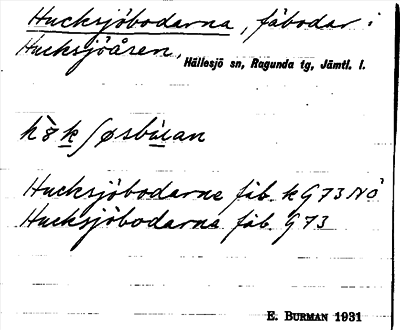 Hucksjöbodarna, fäbodar i
Hucksjöåsen,
Hällesjö sn, Ragunda tg, Jämtl. l.
Hucksjöbodarne fäb. k G 73 NO
Hucksjöbodarna fäb. G 73
E. BURMAN 1931